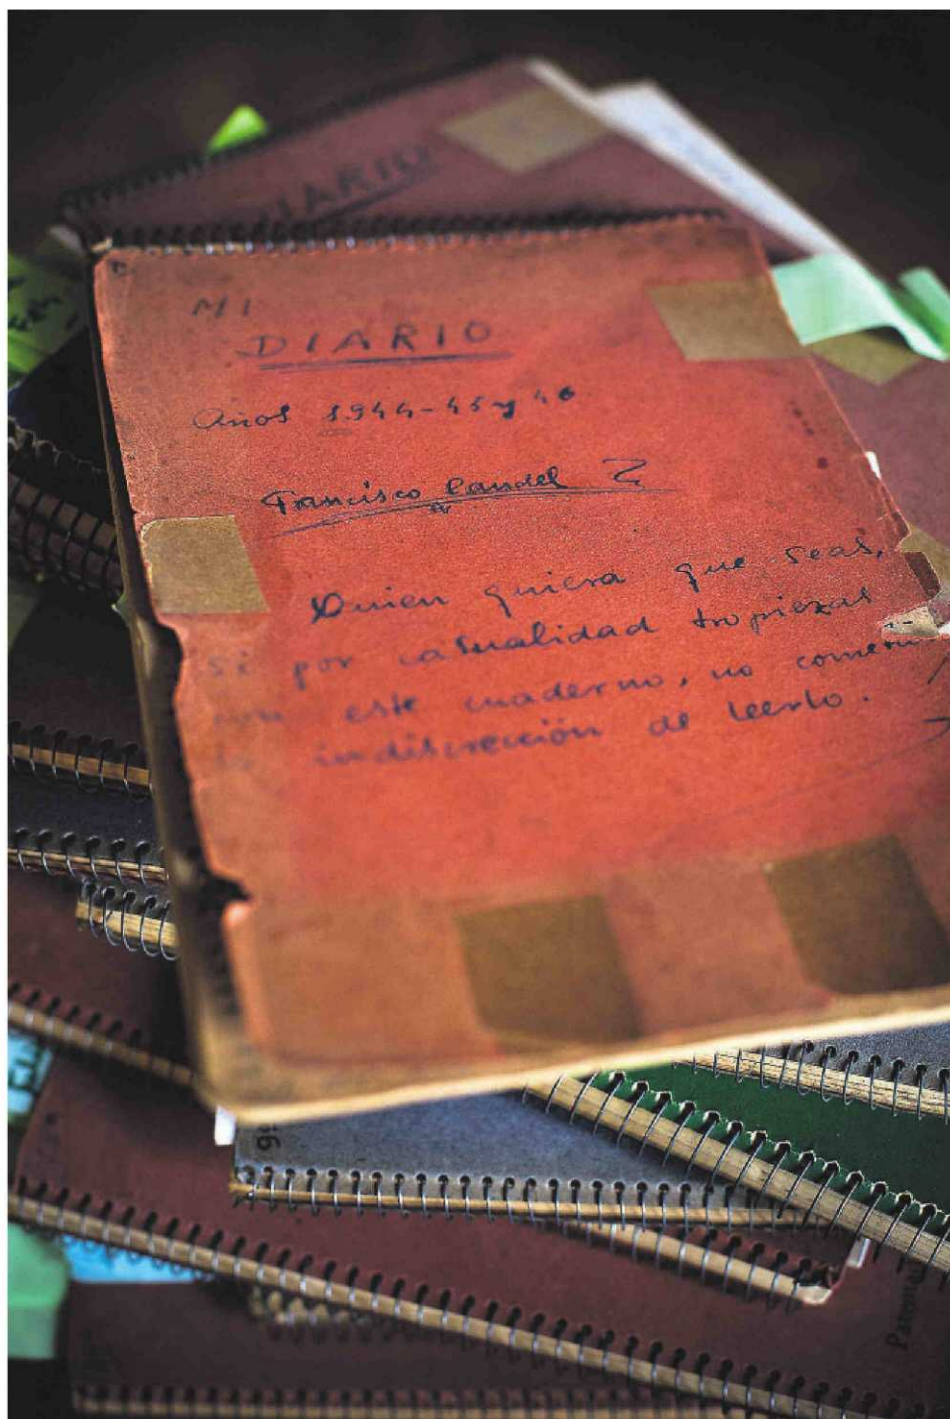 DIARIO
MI
DIARIO
Años 1944-45 y 46
Francisco Candel
Quien quiera que seas,
si por casualidad tropiezas
con este cuaderno, no
la indiscreción de leerlo.